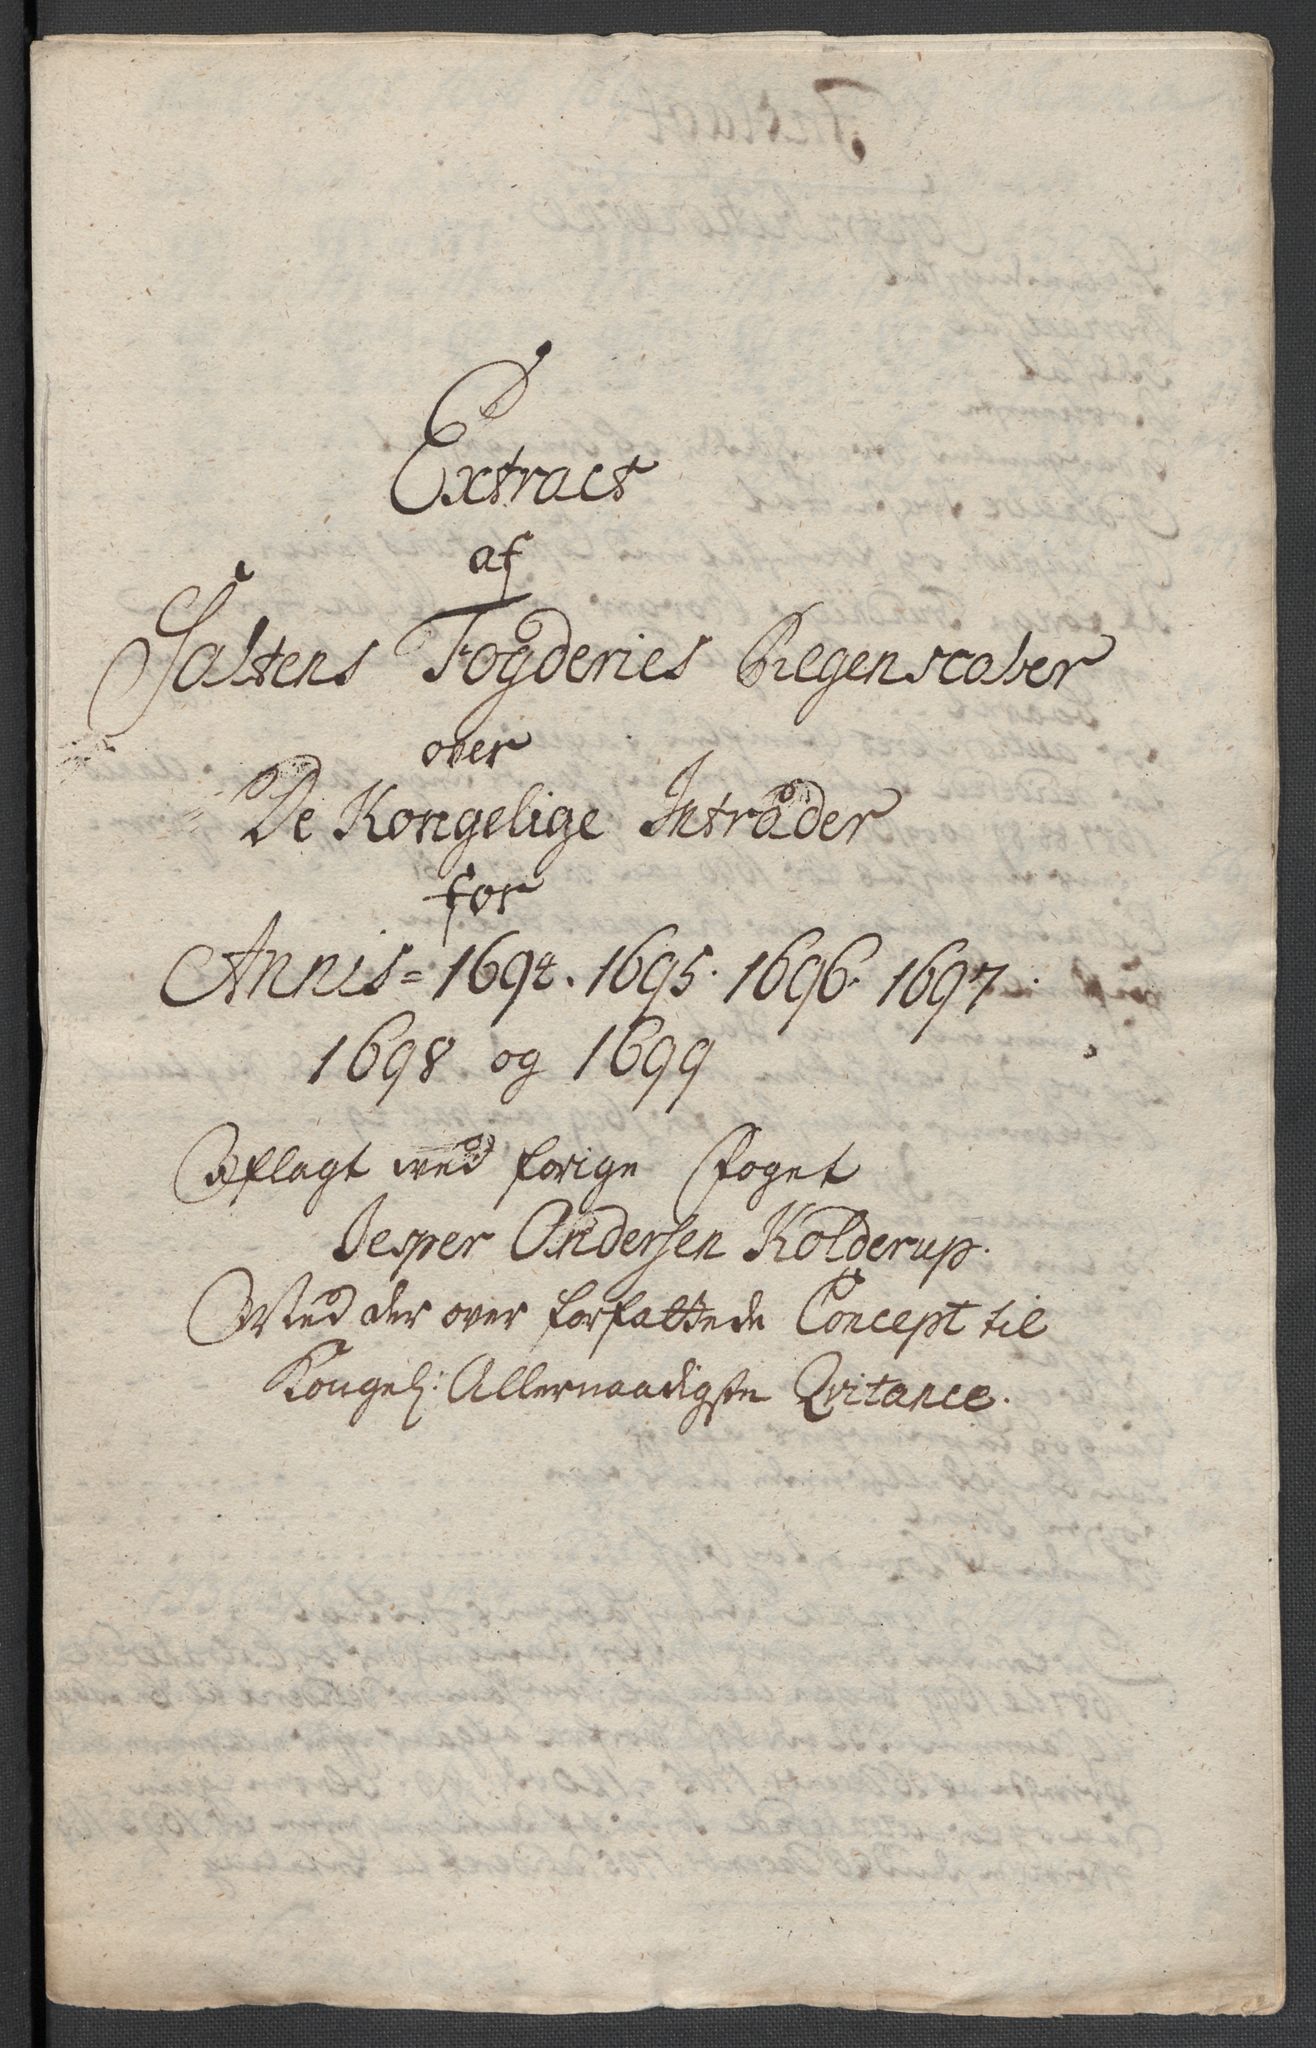 Extract
af
Saltens Fogderies Regenscaber
over
De Kongelige Intrader
for
Annis = 1694. 1695. 1696. 1697.
1698 og 1699
Aflagt ved forige Foget
Jesper Andersen Kolderup.
Med der over forfattede Concept til
Kongel: Allernaadigste Qvitance.